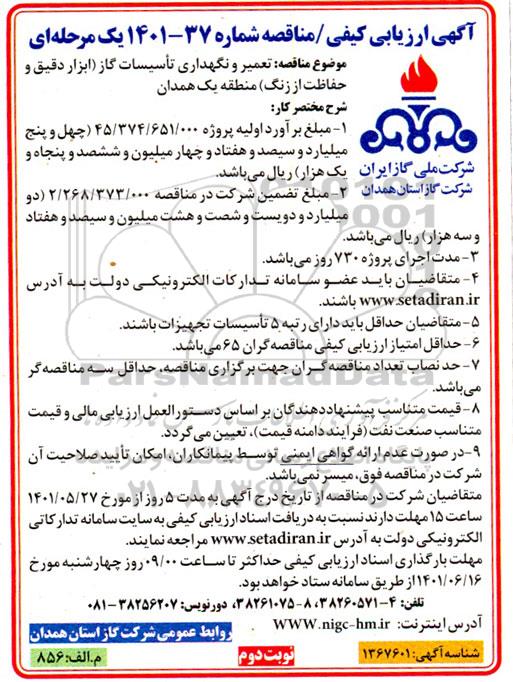 آگهی ارزیابی کیفی /مناقصه شماره ۳۷-۱۴۰۱ یک مرحله‌ای
موضوع مناقصه: تعمیر و نگهداری تأسیسات گاز (ابزار دقیق و
حفاظت از زنگ) منطقه یک همدان
شرح مختصر کار:
۱- مبلغ برآورد اولیه پروژه ۴۵/۳۷۴/۶۵۱/۰۰۰ (چهل و پنج
میلیارد و سیصد و هفتاد و چهار میلیون و ششصد و پنجاه و
یک هزار) ریال می‌باشد.
شرکت ملی گاز ایران
شرکت گاز استان همدان
۲- مبلغ تضمین شرکت در مناقصه ۲/۲۶۸/۳۷۳/۰۰۰ (دو
میلیارد و دویست و شصت و هشت میلیون و سیصد و هفتاد
و سه هزار) ریال می‌باشد.
۳- مدت اجرای پروژه ۷۳۰ روز می‌باشد.
۴- متقاضیان باید عضو سامانه تدارکات الکترونیکی دولت به آدرس
www.setadiran.ir باشند.
۵- متقاضیان حداقل باید دارای رتبه ۵ تأسیسات تجهیزات باشند.
۶- حداقل امتیاز ارزیابی کیفی مناقصه‌گران ۶۵ می‌باشد.
۷- حد نصاب تعداد مناقصه‌گران جهت برگزاری مناقصه، حداقل سه مناقصه‌گر
می‌باشد.
۸- قیمت متناسب پیشنهاددهندگان بر اساس دستورالعمل ارزیابی مالی و قیمت
متناسب صنعت نفت (فرایند دامنه قیمت)، تعیین می‌گردد.
۹- در صورت عدم ارائه گواهی ایمنی توسط پیمانکاران، امکان تأیید صلاحیت آن
شرکت در مناقصه فوق، میسر نمی‌باشد.
متقاضیان شرکت در مناقصه از تاریخ درج آگهی به مدت ۵ روز از مورخ ۱۴۰۱/۰۵/۲۷
ساعت ۱۵ مهلت دارند نسبت به دریافت اسناد ارزیابی کیفی به سایت سامانه تدارکاتی
الکترونیکی دولت به آدرس www.setadiran.ir مراجعه نمایند.
مهلت بارگذاری اسناد ارزیابی کیفی حداکثر تا ساعت ۰۹/۰۰ روز چهارشنبه مورخ
۱۴۰۱/۰۶/۱۶ از طریق سامانه ستاد خواهد بود.
تلفن: ۴-۳۸۲۶۰۵۷۱، ۸-۳۸۲۶۱۰۷۵، دورنویس: ۳۸۲۵۶۲۰۷-۰۸۱
آدرس اینترنت: WWW.nigc-hm.ir
روابط عمومی شرکت گاز استان همدان
شناسه آگهی: ۱۳۶۷۶۰۱
نوبت دوم
م.الف: ۸۵۶
ParsNamadData